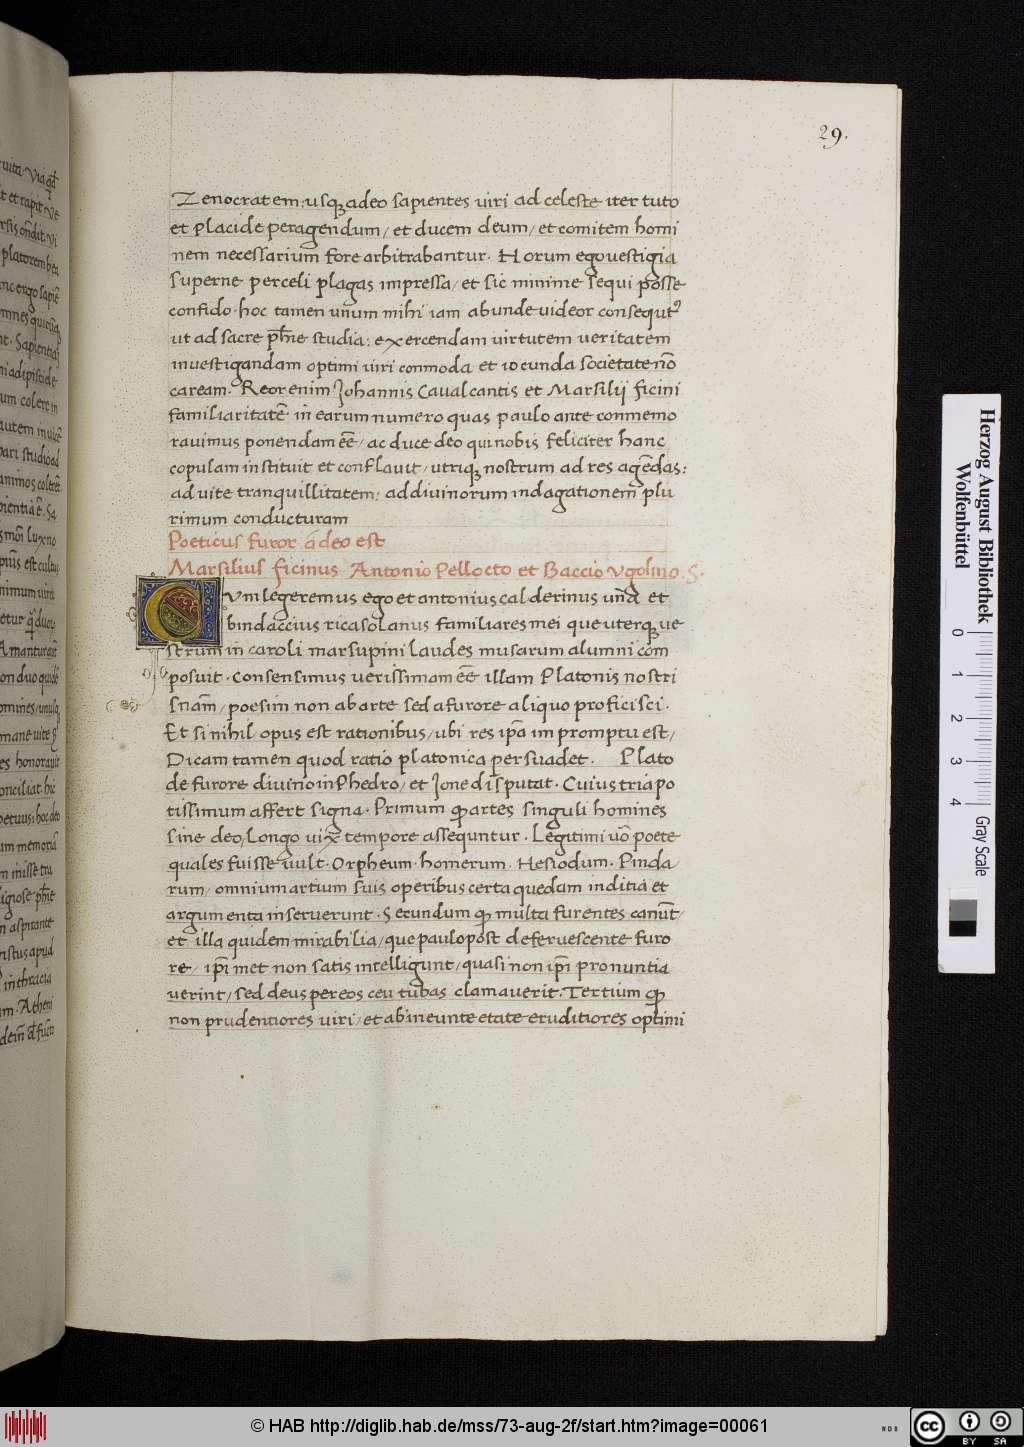 29.
Zenocratem: usq adeo sapientes uiri ad celeste iter tuto
et placide peragendum/ et ducem deum/ et comitem homi
nem necessarium fore arbitrabantur. Horum ego uestigia
superne perceli plagas impressa/ et sic minime sequi posse
confido. hoc tamen unum mihi iam abunde uideor consequt᷑
ut ad sacre ph̄ie studia: exercendam uirtutem ueritatem
inuestigandam optimi uiri conmoda et iocunda societate nō
caream. Reor enim Johannis Caualcantis et Marsilij ficini
familiaritatē in earum numero quas paulo ante conmemo
rauimus ponendam eē/ ac duce deo qui nobis feliciter hanc
copulam instituit et conflauit/ utriq nostrum ad res agēdas:
ad uite tranquillitatem: ad diuinorum indagationem plu
rimum conducturam
Poeticus furor á deo est
Marsilius ficinus Antonio Pellocto et Baccio Vgolino. S.
CVm legeremus ego et antonius calderinus unā et
bindaccius ricasolanus familiares mei que uterq ue
strum in caroli marsupini laudes musarum alumni com
posuit. Consensimus uerissimam eē illam Platonis nostri
snām/ poesim non ab arte sed a furore aliquo proficisci.
Et si nihil opus est rationibus/ ubi res ip̄a impromptu est/
Dicam tamen quod ratio platonica persuadet. Plato
de furore diuino in Phedro/ et Jone disputat. Cuius tria po
tissimum affert signa. Primum ꝙ artes singuli homines
sine deo/ Longo uix tempore assequntur. Legitimi uō poete
quales fuisse uult. Orpheum. homerum. Hesiodum. Pinda
rum/ omnium artium suis operibus certa quedam inditia et
argumenta inseruerunt. Secundum ꝙ multa furentes canūt/
et illa quidem mirabilia/ que paulopost deferuescente furo
re/ ip̄i met non satis intelligunt/ quasi non ip̄i pronuntia
uerint/ sed deus per eos ceu tubas clamauerit. Tertium ꝙ
non prudentiores uiri/ et ab ineunte etate eruditiores optimi
Herzog August Bibliothek
Wolfenbüttel
0 1 2 3 4
Gray Scale
© HAB http://diglib.hab.de/mss/73-aug-2f/start.htm?image=00061
WDB
cc BY SA